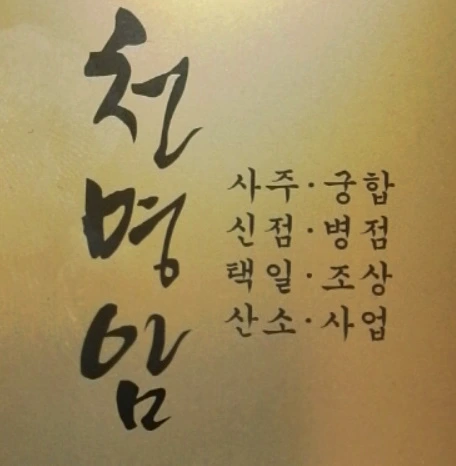 천명암
사주·궁합
신점·병점
택일·조상
산소·사업